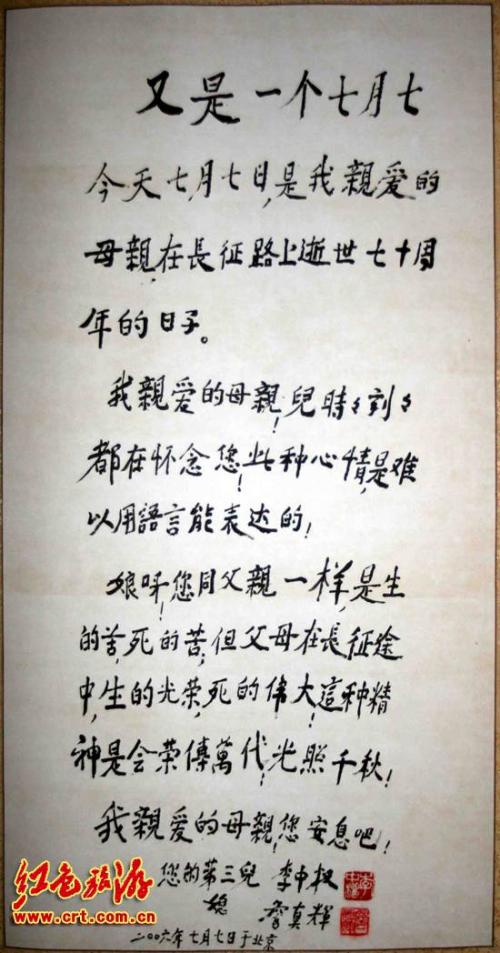 又是一个七月七
今天七月七日,是我親爱的
母親在長征路上逝世七十周
年的日子。
我親爱的母親!兒時々刻々
都在怀念您!此种心情是难
以用語言能表达的!
娘呀!您同父親一样,是生
的苦,死的苦,但父母在長征途
中,生的光荣,死的伟大!這种精
神是会荣傳萬代!光照千秋!
我親爱的母親,您安息吧!
您的第三兒 李中权
媳 詹真輝
二〇〇六年七月七日于北京
红色旅游
www.crt.com.cn